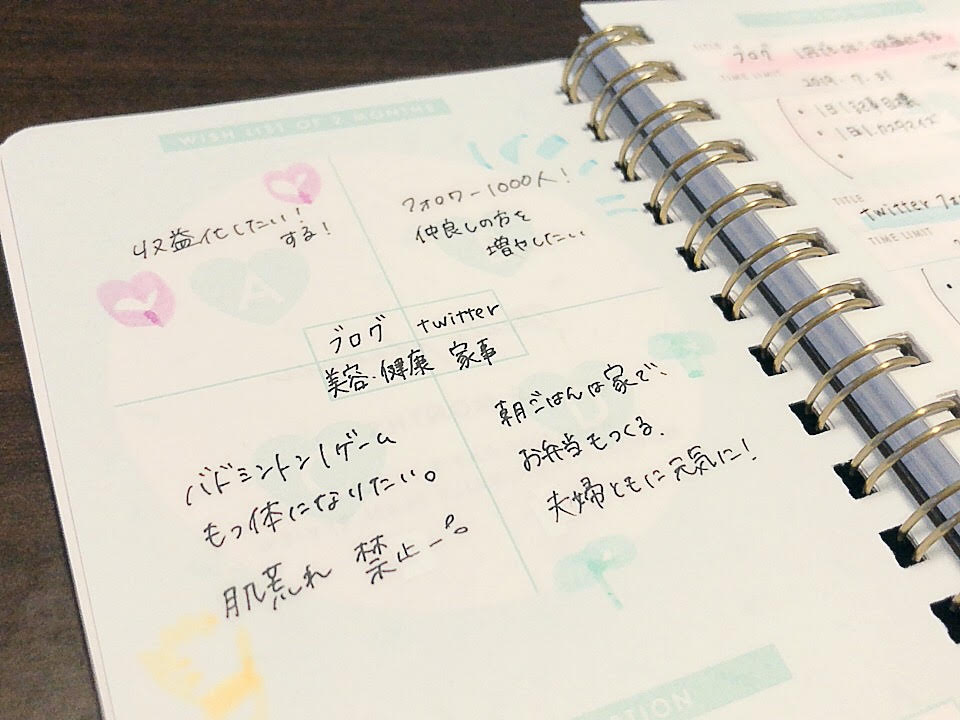 WISH LIST OF 2 MONTHS
収益化したい!
する!
A
フォロワー1000人!
仲良しの方を
増やしたい
ブログ twitter
美容・健康 家事
バドミントン1ゲーム
もつ体になりたい。
肌荒れ 禁止ー!!
朝ごはんは家で、
お弁当もつくる。
夫婦ともに元気に!
TITLE ブログ
TIME LIMIT 2019.7.31
・1日1記事目標
TITLE
twitter フォ
TIME LIMIT